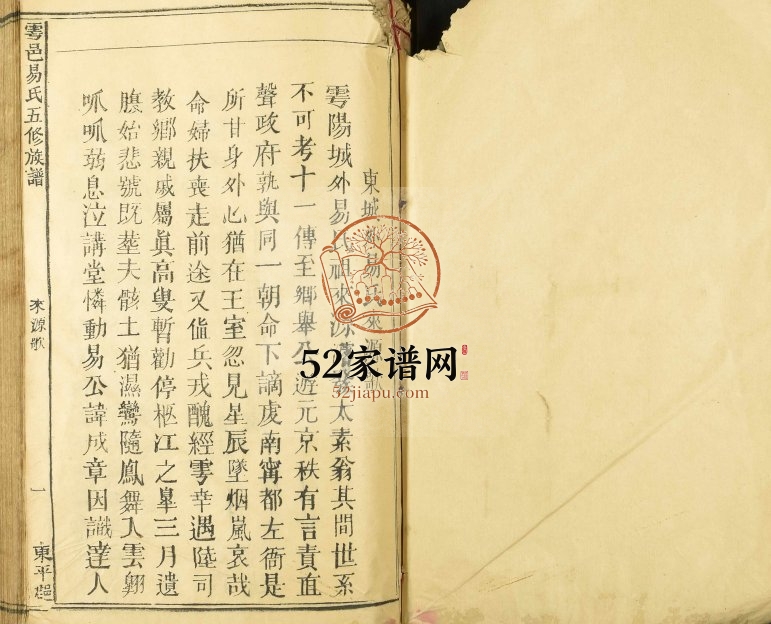 東城外易氏來源歌
雩陽城外易氏祖來源太素翁其間世系
不可考十一傳至鄉舉公遊元京秩有言責直
聲政府孰與同一朝命下謫虔南甯都左衙是
所甘身外心猶在王室忽見星辰墜烟嵐哀哉
命婦扶喪走前途又值兵戎醜經雩幸遇陸司
教鄉親戚屬眞高叟暫勸停柩江之臯三月遺
腹始悲號旣塟夫骸土猶濕鸞隨鳳舞入雲翺
呱呱弱息泣講堂憐動易公諱成章因識達人
雩邑易氏五修族譜
來源歌
一
東平
52家谱网
52jiapu.com